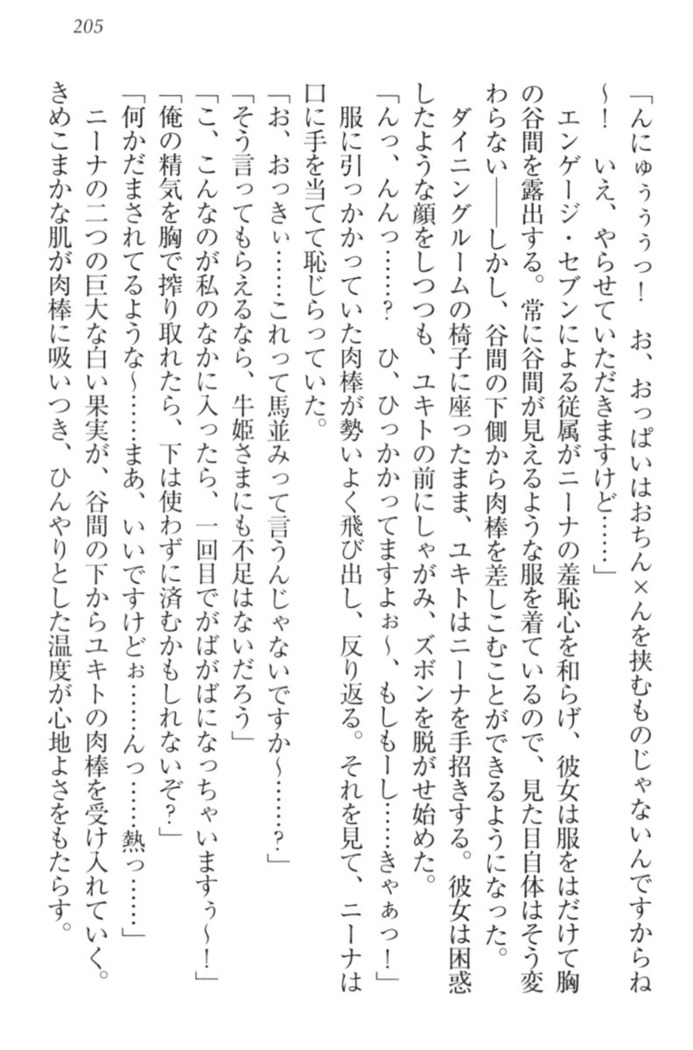 205
「んにゅぅぅぅっ！　お、おっぱいはおちん×んを挟むものじゃないんですからね
〜！　いえ、やらせていただきますけど……」
エンゲージ・セブンによる従属がニーナの羞恥心を和らげ、彼女は服をはだけて胸
の谷間を露出する。常に谷間が見えるような服を着ているので、見た目自体はそう変
わらない――しかし、谷間の下側から肉棒を差しこむことができるようになった。
ダイニングルームの椅子に座ったまま、ユキトはニーナを手招きする。彼女は困惑
したような顔をしつつも、ユキトの前にしゃがみ、ズボンを脱がせ始めた。
「んっ、んんっ……？　ひ、ひっかかってますよぉ〜、もしもーし……きゃぁっ！」
服に引っかかっていた肉棒が勢いよく飛び出し、反り返る。それを見て、ニーナは
口に手を当てて恥じらっていた。
「お、おっきぃ……これって馬並みって言うんじゃないですか〜……？」
「そう言ってもらえるなら、牛姫さまにも不足はないだろう」
「こ、こんなのが私のなかに入ったら、一回目でがばがばになっちゃいますぅ〜！」
「俺の精気を胸で搾り取れたら、下は使わずに済むかもしれないぞ？」
「何かだまされてるような〜……まあ、いいですけどぉ……んっ……熱っ……」
ニーナの二つの巨大な白い果実が、谷間の下からユキトの肉棒を受け入れていく。
きめこまかな肌が肉棒に吸いつき、ひんやりとした温度が心地よさをもたらす。